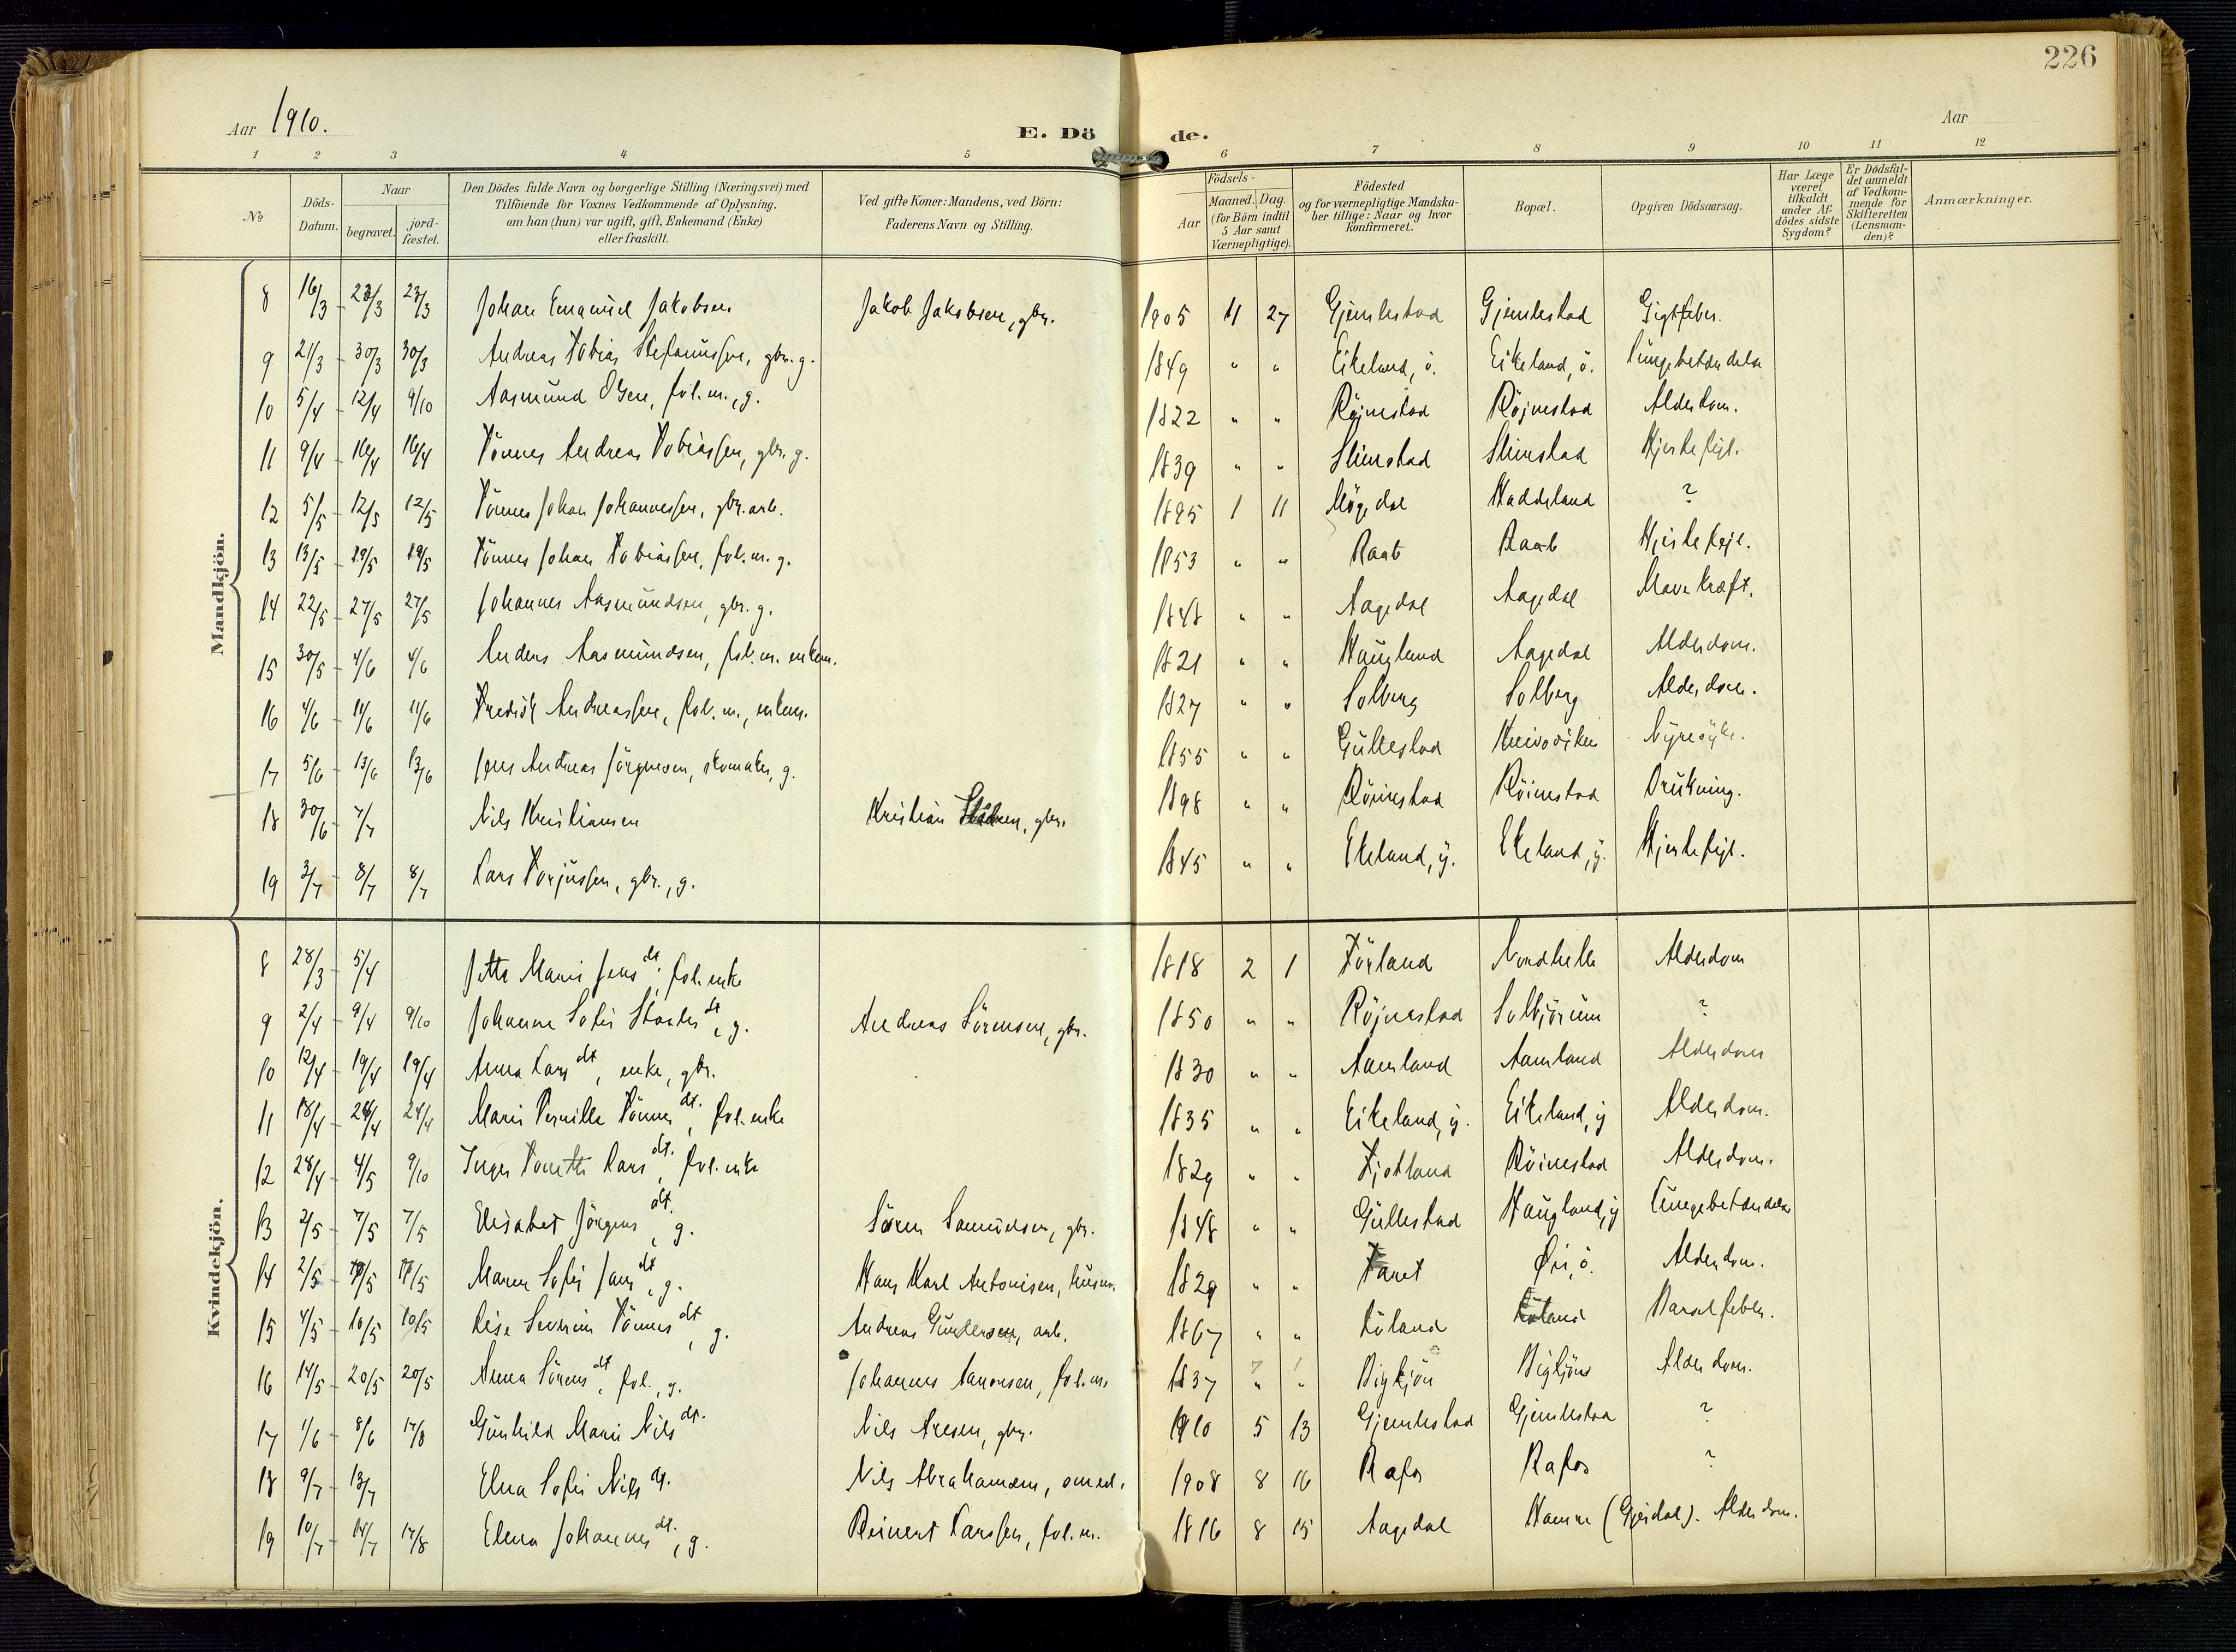 226
Aar 1910.
E. Döde.
Aar
1 2 3 4 5 6 7 8 9 10 11 12
№
Döds-Datum.
Naar begravet. jord-fæstet.
Den Dödes fulde Navn og borgerlige Stilling (Næringsvei) med Tilföiende for Voxnes Vedkommende af Oplysning. om han (hun) var ugift, gift, Enkemand (Enke) eller fraskilt.
Ved gifte Koner: Mandens, ved Börn: Faderens Navn og Stilling.
Födsels- Aar Maaned. Dag. (for Börn indtil 5 Aar samt Værnepligtige).
Födested og for værnepligtige Mandskaber tillige: Naar og hvor konfirmeret.
Bopæl.
Opgiven Dödsaarsag.
Har Læge været tilkaldt under Afdödes sidste Sygdom?
Er Dödsfaldet anmeldt af Vedkommende for Skifteretten (Lensmanden)?
Anmærkninger.
Mandkjön.
8 16/3 - 23/3 23/3 Johan Emanuel Jakobsen Jakob Jakobsen, gbr. 1905 11 27 Gjemlestad Gjemlestad Gigtfeber.
9 21/3 - 30/3 30/3 Andreas Tobias Stefanussen, gbr. g. 1849 " " Eikeland, ö. Eikeland, ö. Lungebetændelse
10 5/4 - 12/4 9/10 Aasmund Olsen, fol.m., g. 1822 " " Röjnestad Röjnestad Alderdom.
11 9/4 - 16/4 16/4 Tönnes Andreas Tobiassen, gbr. g. 1839 " " Slimstad Slimstad Hjertefejl.
12 5/5 - 12/5 12/5 Tönnes Johan Johannessen, gbr. arb. 1895 1 11 Mögedal Haddeland ?
13 13/5 - 19/5 19/5 Tönnes Johan Tobiassen, fol.m. g. 1853 " " Raab Raab Hjertefejl.
14 22/5 - 27/5 27/5 Johannes Aasmundsen, gbr. g. 1848 " " Aagedal Aagedal Mavekræft.
15 30/5 - 4/6 4/6 Anders Aasmundsen, fol.m. enkem. 1821 " " Haugland Aagedal Alderdom.
16 4/6 - 11/6 11/6 Fredrik Andreassen, fol.m., enkem. 1827 " " Solberg Solberg Alderdom.
17 5/6 - 13/6 13/6 Jens Andreas Jörgensen, skomaker, g. 1855 " " Gullestad Nyresyke.
18 30/6 - 7/7 Nils Kristiansen Kristian gbr. 1898 " " Röinestad Röinestad Drukning.
19 3/7 - 8/7 8/7 Lars Torjussen, gbr., g. 1845 " " Ekeland, y. Ekeland, y. Hjertefejl.
Kvindekjön.
8 28/3 - 5/4 Jette Marie Jens dt., fol. enke 1818 2 1 Förland Nordhelle Alderdom
9 2/4 - 9/4 9/10 Johanne Sofie dt., g. Andreas Sörensen, gbr. 1850 " " Röjnestad Solbjörum ?
10 12/4 - 19/4 19/4 Anna Lars dt, enke, gbr. 1830 " " Aamland Aamland Alderdom
11 18/4 - 24/4 24/4 Marie Pernille Tönnes dt., fol. enke 1835 " " Eikeland, y. Eikeland, y Alderdom.
12 28/4 - 4/5 9/10 Inger Tonette Lars dt., fol. enke 1829 " " Fjotland Röinestad Alderdom.
13 2/5 - 7/5 7/5 Elisabet Jörgens dt., g. Sören Samuelsen, gbr. 1848 " " Gullestad Haugland, y Lungebetændelse
14 2/5 - /5 /5 Maren Sofie Jens dt, g. Hans Karl Antonisen, husm. 1829 " " Öie, ö. Alderdom.
15 4/5 - 10/5 10/5 Lise Severine Tönnes dt, g. Andreas Gundersen, arb. 1867 " " Löland Löland Barselfeber.
16 14/5 - 20/5 20/5 Anna Sörens dt, fol., g. Johannes Aanonsen, fol.m. 1837 " " Birkjön Birkjön Alderdom.
17 1/6 - 8/6 14/8 Gunhild Marie Nils dt. Nils Aresen, gbr. 1910 5 13 Gjemlestad Gjemlestad ?
18 9/7 - 13/7 Elna Sofie Nils dt. Nils Abrahamsen, smed. 1908 8 16 Rafos Rafos ?
19 10/7 - 14/7 14/8 Elena Johannes dt., g. Reinert Larssen, fol.m. 1816 8 15 Aagedal Hamre (Gyidal). Alderdom.